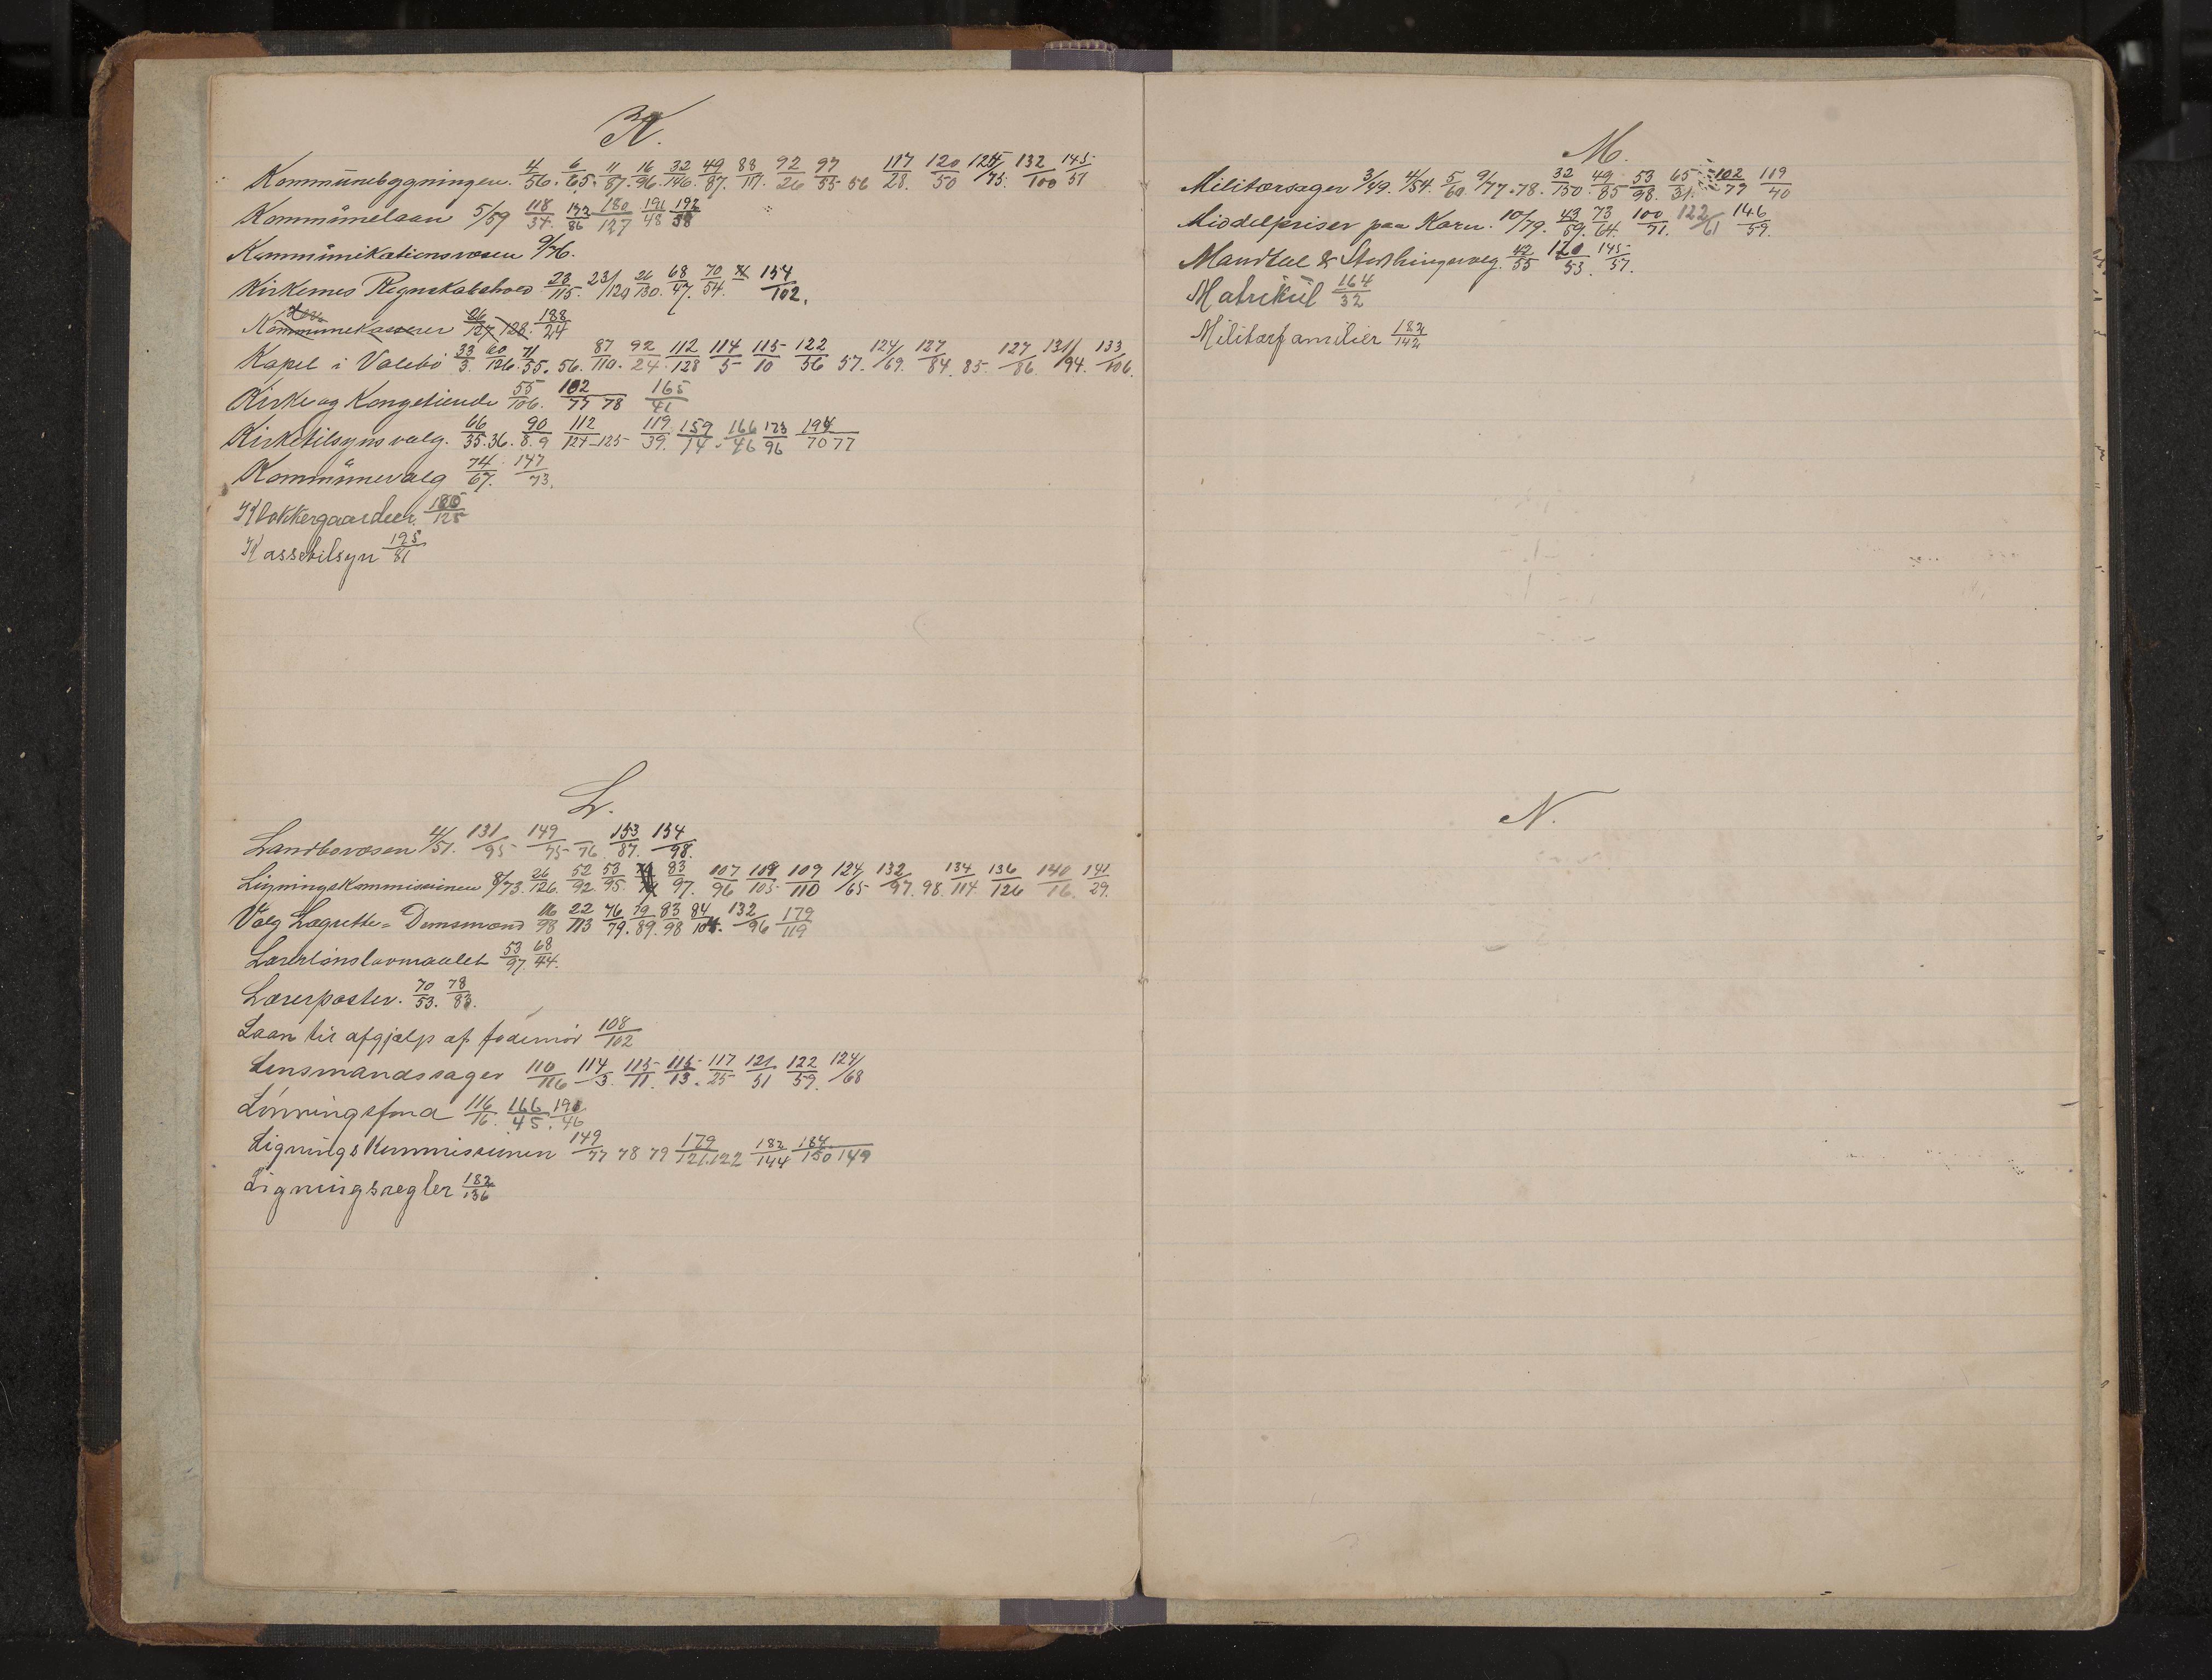 K.
Kommünebygningen. 4/56. 6/65. 11/87. 16/96. 32/146. 49/87. 88/117. 92/26 97/55 56 117/28. 120/50 125/75. 132/100 145/51
Kommünelaan 5/59 118/34. 173/86 180/127 191/48 192/58
Kommünikationsvæsen 9/76.
Kirkernes Regnskabshold 23/115. 23/120 26/130. 68/47. 70/54. 154/102.
Kommunekasserer 26/127 128. 188/24
Kapel i Valebö 33/3. 60/126. 71/55. 56. 87/110. 92/24. 112/128 114/5 115/10 122/56 57. 124/69. 127/84. 85. 127/86. 131/94. 133/106.
Kirke og Kongetiende 55/106. 102/77 78 165/41
Kirketilsynsvalg. 66/35.36. 90/8.9 112/124-125 119/39. 159/14. 166/46 173/96 194/70 77
Kommünevalg 74/67. 147/73.
Klokkergaarden 180/125
Kassetilsyn 195/81
L.
Landbovæsen 4/51. 131/95 149/75 76 153/87. 154/98.
Ligningskommissionen 8/73. 26/126. 52/92. 53/95. 83/97. 107/96 108/105 109/110 124/65 132/97. 98. 134/114. 136/126 140/16. 141/29.
Valg Lagrette- Domsmænd 16/98 22/113 76/79. 79/89. 83/98 84/104. 132/96 179/119
Lærerlönslovmaalet 53/97. 68/44.
Lærerposter. 70/53. 78/83.
Laan til afgjælp af födenöd 108/102
Lensmandssager 110/116 114/3. 115/11. 115/13. 117/25 121/51 122/59. 124/68
Lönningsfond 116/16. 166/45. 190/46
Ligningskommissionen 149/77 78 79 179/121.122 182/144 184/150 149
Ligningsregler 182/136
M.
Militærsager 3/49. 4/54. 5/60. 9/77.78. 32/150. 49/85 53/98. 65/31. 102/79 119/40
Middelpriser paa Korn. 10/79. 43/59. 73/64. 100/71. 122/61 146/59.
Mandtal & 42/55 120/53. 145/57.
Matrikül 164/32
Militærfamilier 182/142
N.